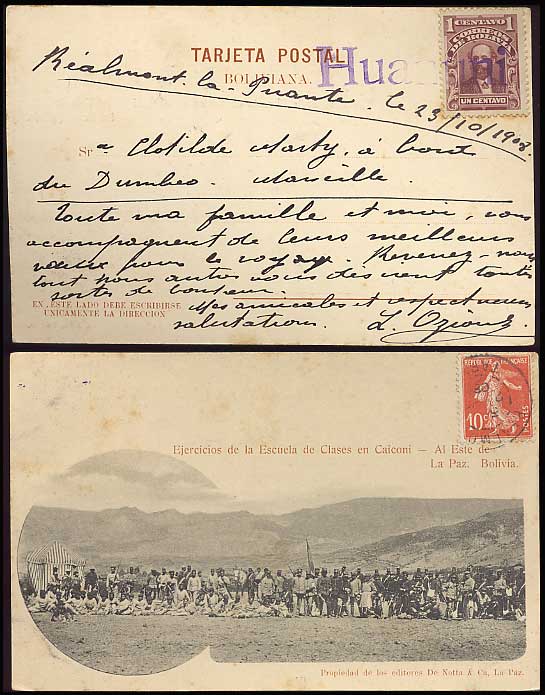 1 CENTAVO 1
CORREOS
DE BOLIVIA
UN CENTAVO
TARJETA POSTAL
BOLIVIANA.
Huanuni
Réalmont la le 23/10/1908.
Sr a Clotilde Marty, à bord
du Dumbea. Marseille.
Toute ma famille et moi, vous
accompagnent de leurs meilleurs
vœux pour le voyage. Revenez-nous
tout nous autres vous désirent toutes
sortes de bonheur.
Mes amicales et respectueuses
salutations. L.
EN ESTE LADO DEBE ESCRIBIRSE
UNICAMENTE LA DIRECCION
REPUBLIQUE FRANÇAISE
10c POSTES
Ejercicios de la Escuela de Clases en Caiconi — Al Este de
La Paz. Bolivia.
Propiedad de los editores De Notta & Ca, La Paz.